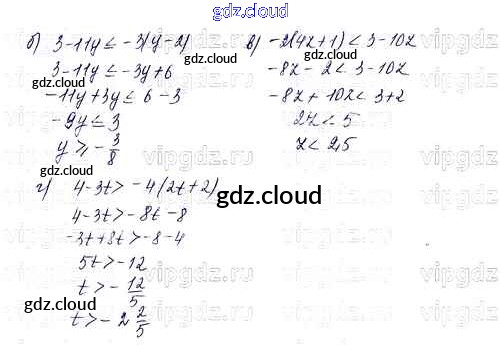 gdz.cloud
б) 3-11y ≤ -3(y-2)
3-11y ≤ -3y+6
-11y+3y ≤ 6-3
-9y ≤ 3
y ≥ -3/8
в) -2(4z+1) < 3-10z
-8z-2 < 3-10z
-8z+10z < 3+2
2z < 5
z < 2,5
г) 4-3t > -4(2t+2)
4-3t > -8t-8
-3t+8t > -8-4
5t > -12
t > -12/5
t > -2 2/5
gdz.cloud
gdz.cloud
gdz.cloud
gdz.cloud
gdz.cloud
gdz.cloud
gdz.cloud
vipgdz.ru
vipgdz.ru
vipgdz.ru